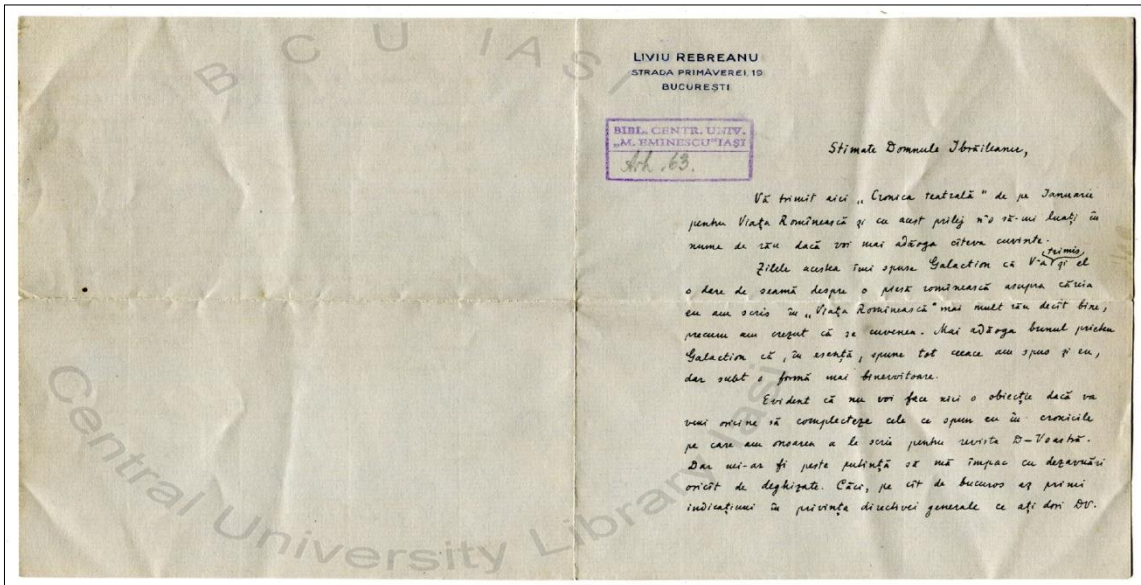 B C U IASI
LIVIU REBREANU
STRADA PRIMĂVEREI, 19
BUCUREȘTI
BIBL. CENTR. UNIV.
„M. EMINESCU” IAȘI
Arh. 63.
Stimate Domnule Ibrăileanu,
Vă trimit aici „Cronica teatrală" de pe Ianuarie
pentru Viața Romînească și cu acest prilej n'o să-mi luați în
nume de rău dacă voi mai adăoga cîteva cuvinte.
Zilele acestea îmi spuse Galaction că V-a trimis și el
o dare de seamă despre o piesă romînească asupra căreia
eu am scris în „Viața Romînească" mai mult rău decît bine,
precum am crezut că se cuvenea. Mai adăoga bunul prieten
Galaction că, în esență, spune tot ceeace am spus și eu,
dar subt o formă mai binevoitoare.
Evident că nu voi face nici o obiecție dacă va
veni oricine să complecteze cele ce spun eu în cronicile
pe care am onoarea a le scrie pentru revista D-Voastră.
Dar mi-ar fi peste putință să mă împac cu dezavuări
oricît de deghizate. Căci, pe cît de bucuros aș primi
indicațiuni în privința directivei generale ce ați dori DV.
Central University Library Iasi